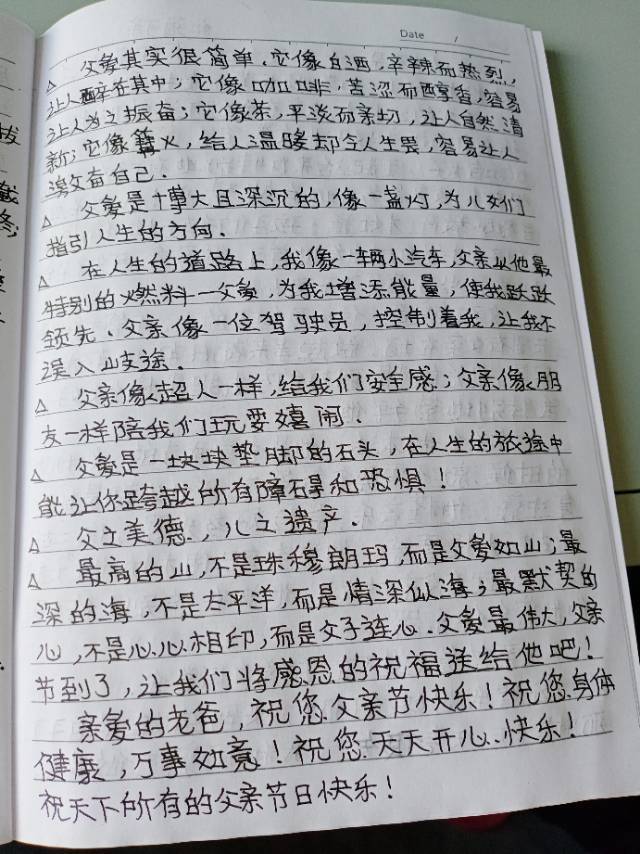 Date /
△ 父爱其实很简单。它像白酒,辛辣而热烈,
让人醉在其中;它像咖啡,苦涩而醇香,容易
让人为之振奋;它像茶,平淡而亲切,让人自然清
新;它像篝火,给人温暖却令人生畏,容易让人
激奋自己。
△ 父爱是博大且深沉的,像一盏灯,为儿女们
指引人生的方向。
△ 在人生的道路上,我像一辆小汽车,父亲以他最
特别的燃料一父爱,为我增添能量,使我跃跃
领先。父亲像一位驾驶员,控制着我,让我不
误入歧途。
△ 父亲像超人一样,给我们安全感;父亲像朋
友一样陪我们玩耍嬉闹。
△ 父爱是一块块垫脚的石头,在人生的旅途中
能让你跨越所有障碍和恐惧!
△ 父之美德,儿之遗产。
△ 最高的山,不是珠穆朗玛,而是父爱如山;最
深的海,不是太平洋,而是情深似海;最默契的
心,不是心心相印,而是父子连心。父爱最伟大,父亲
节到了,让我们将感恩的祝福送给他吧!
亲爱的老爸,祝您父亲节快乐!祝您身体
健康,万事如意!祝您天天开心、快乐!
祝天下所有的父亲节日快乐!